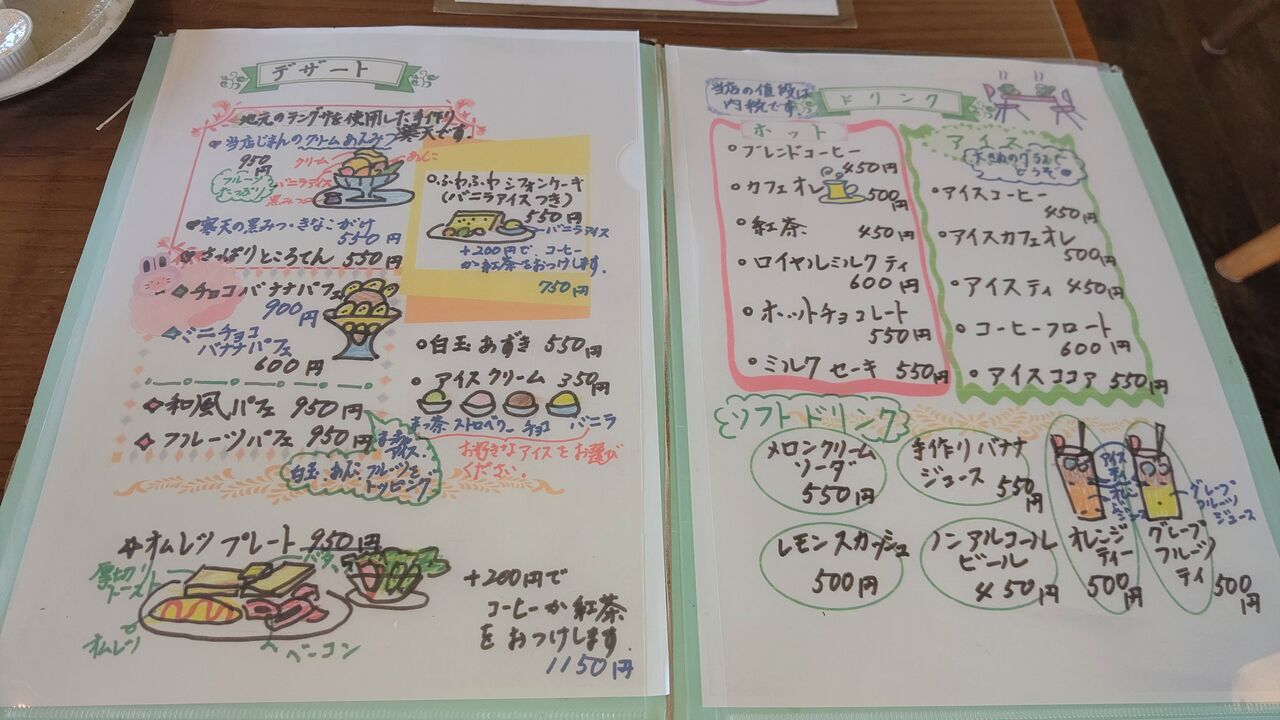 デザート
地元のテングサを使用した手作り
寒天です
当店じまんのクリームあんみつ
950円
フルーツ
たっぷり
クリーム
あんこ
バニラアイス
黒みつ
寒天の黒みつ・きなこがけ
550円
さっぱりところてん 550円
チョコバナナパフェ
900円
ミニチョコ
バナナパフェ
600円
和風パフェ 950円
フルーツパフェ 950円
まっ茶
アイス
白玉、あんこ、フルーツを
トッピング
ふわふわシフォンケーキ
(バニラアイスつき)
550円
バニラアイス
+200円で、コーヒー
か紅茶をおつけします。
750円
白玉あずき 550円
アイスクリーム 350円
まっ茶 ストロベリー チョコ バニラ
お好きなアイスをお選び
ください。
オムレツプレート 950円
厚切り
トースト
バター
オムレツ
ベーコン
+200円で
コーヒーか紅茶
をおつけします。
1150円
当店の値段は
内税です
ドリンク
ホット
ブレンドコーヒー
450円
カフェオレ 500円
紅茶 450円
ロイヤルミルクティ
600円
ホットチョコレート
550円
ミルクセーキ 550円
アイス
大きめのグラスで
どうぞ
アイスコーヒー
450円
アイスカフェオレ
500円
アイスティ 450円
コーヒーフロート
600円
アイスココア 550円
ソフトドリンク
メロンクリーム
ソーダ
550円
手作りバナナ
ジュース 550円
レモンスカッシュ
500円
ノンアルコール
ビール
450円
オレンジ
ティー
500円
グレープ
フルーツ
ジュース
グレープ
フルーツ
ティ
500円